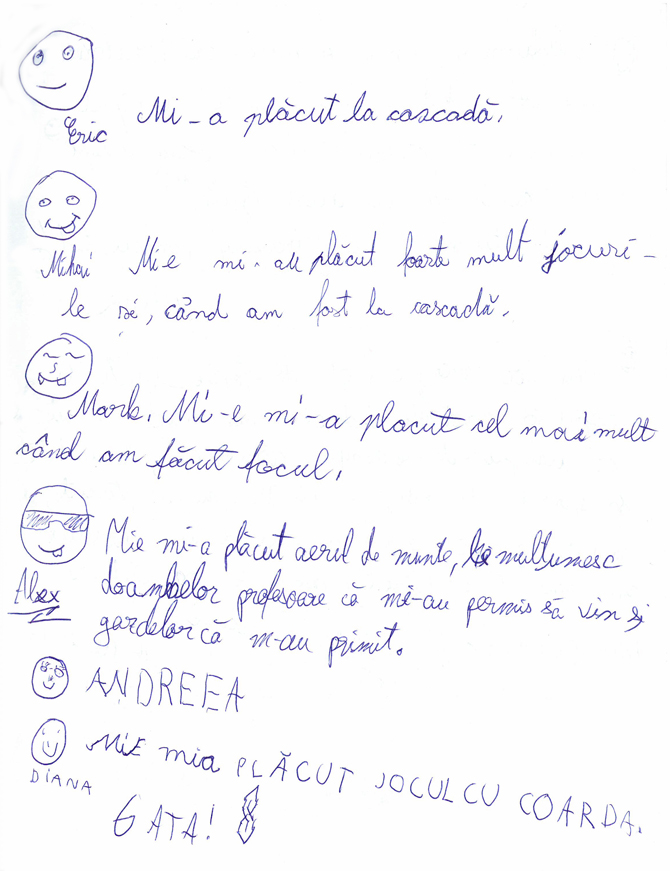 Eric
Mi-a plăcut la cascadă.
Mihai
Mie mi-au plăcut foarte mult jocuri-
le și, când am fost la cascadă.
Mark. Mi-e mi-a placut cel mai mult
când am făcut focul.
Mie mi-a plăcut aerul de munte, le mulțumesc
Alex
doamnelor profesoare că mi-au permis să vin și
gazdelor că m-au primit.
ANDREEA
MiE mia PLĂCUT JOCUL CU COARDA.
DIANA
GATA!